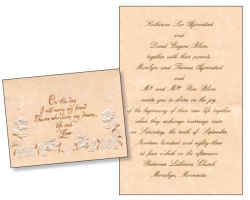 On this day
I will marry my friend
the one who shares my dreams,
life and
Love
Katherine Lee Hjermstad
and
David Eugene Blom
together with their parents
Marilyn and Thomas Hjermstad
and
Mr and Mrs Ron Blom
invite you to share in the joy
of the beginning of their new life together
when they exchange marriage vows
on Saturday, the tenth of September
Nineteen hundred and eighty-
at four o'clock in the afternoon
Lutheran Church
Minnesota